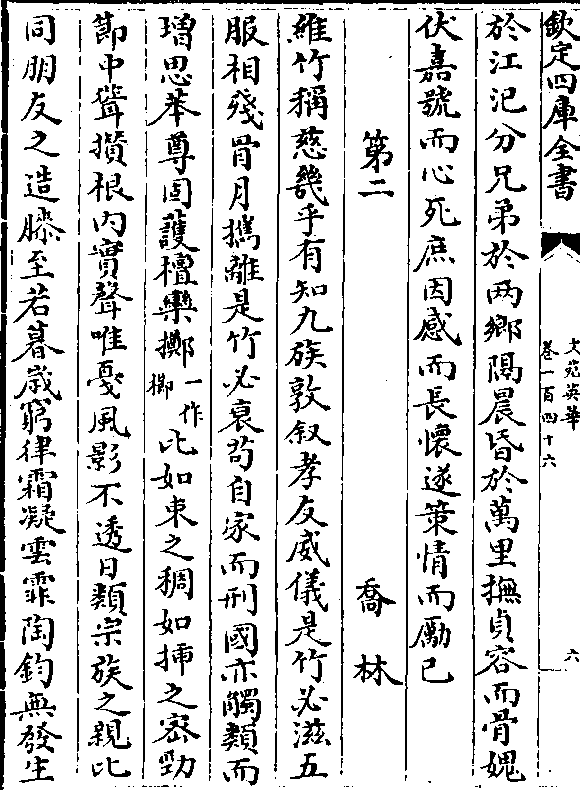 欽定四庫全書
文苑英華
卷一百四十六
六
於江汜分兄弟於两鄉隔晨昏於萬里撫貞容而骨媿
伏嘉號而心死庶因感而長懷遂策情而勵己
第二
喬林
維竹稱慈幾乎有知九族敦叙孝友威儀是竹必滋五
服相殘骨月攜離是竹必衰茍自家而刑國亦觸類而
増思苯䔿固護檀欒擲一作擲比如束之稠如揷之密勁
莭中聳攅根内實聲唯戞風影不透日類宗族之親比
同朋友之造膝至若暮嵗窮律霜凝雲霏陶鈞無發生